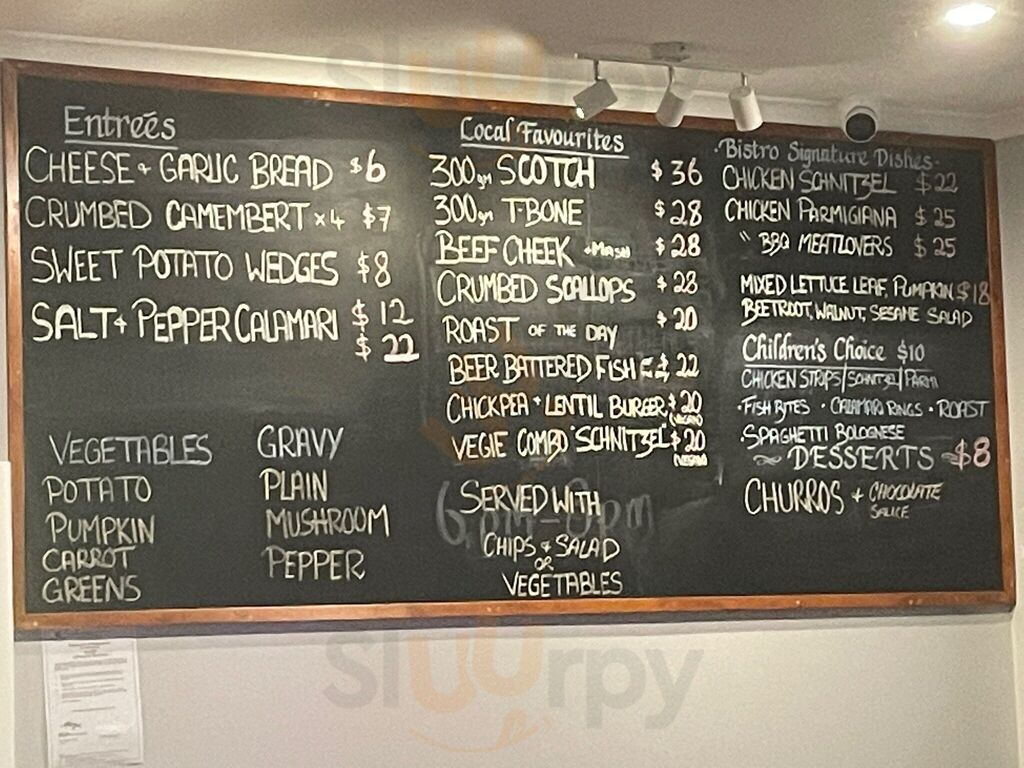 Entreés
CHEESE + GARLIC BREAD $6
CRUMBED CAMEMBERT x4 $7
SWEET POTATO WEDGES $8
SALT + PEPPER CALAMARI $12
$22
VEGETABLES
POTATO
PUMPKIN
CARROT
GREENS
GRAVY
PLAIN
MUSHROOM
PEPPER
Local Favourites
300gm SCOTCH $36
300gm T-BONE $28
BEEF CHEEK +MASH $28
CRUMBED SCALLOPS $28
ROAST OF THE DAY $20
BEER BATTERED FISH $22
CHICKPEA + LENTIL BURGER $20
(VEGAN)
VEGIE COMBO "SCHNITZEL" $20
(VEGAN)
SERVED WITH
CHIPS + SALAD
OR
VEGETABLES
·Bistro Signature Dishes·
CHICKEN SCHNITZEL $22
CHICKEN PARMIGIANA $25
" BBQ MEATLOVERS $25
MIXED LETTUCE LEAF, PUMPKIN $18
BEETROOT, WALNUT, SESAME SALAD
Children's Choice $10
CHICKEN STRIPS/SCHNITZEL/PARMI
·FISH BITES · CALAMARI RINGS · ROAST
·SPAGHETTI BOLOGNESE
~ DESSERTS ~ $8
CHURROS + CHOCOLATE
SAUCE
slUUrpy
slUUrpy